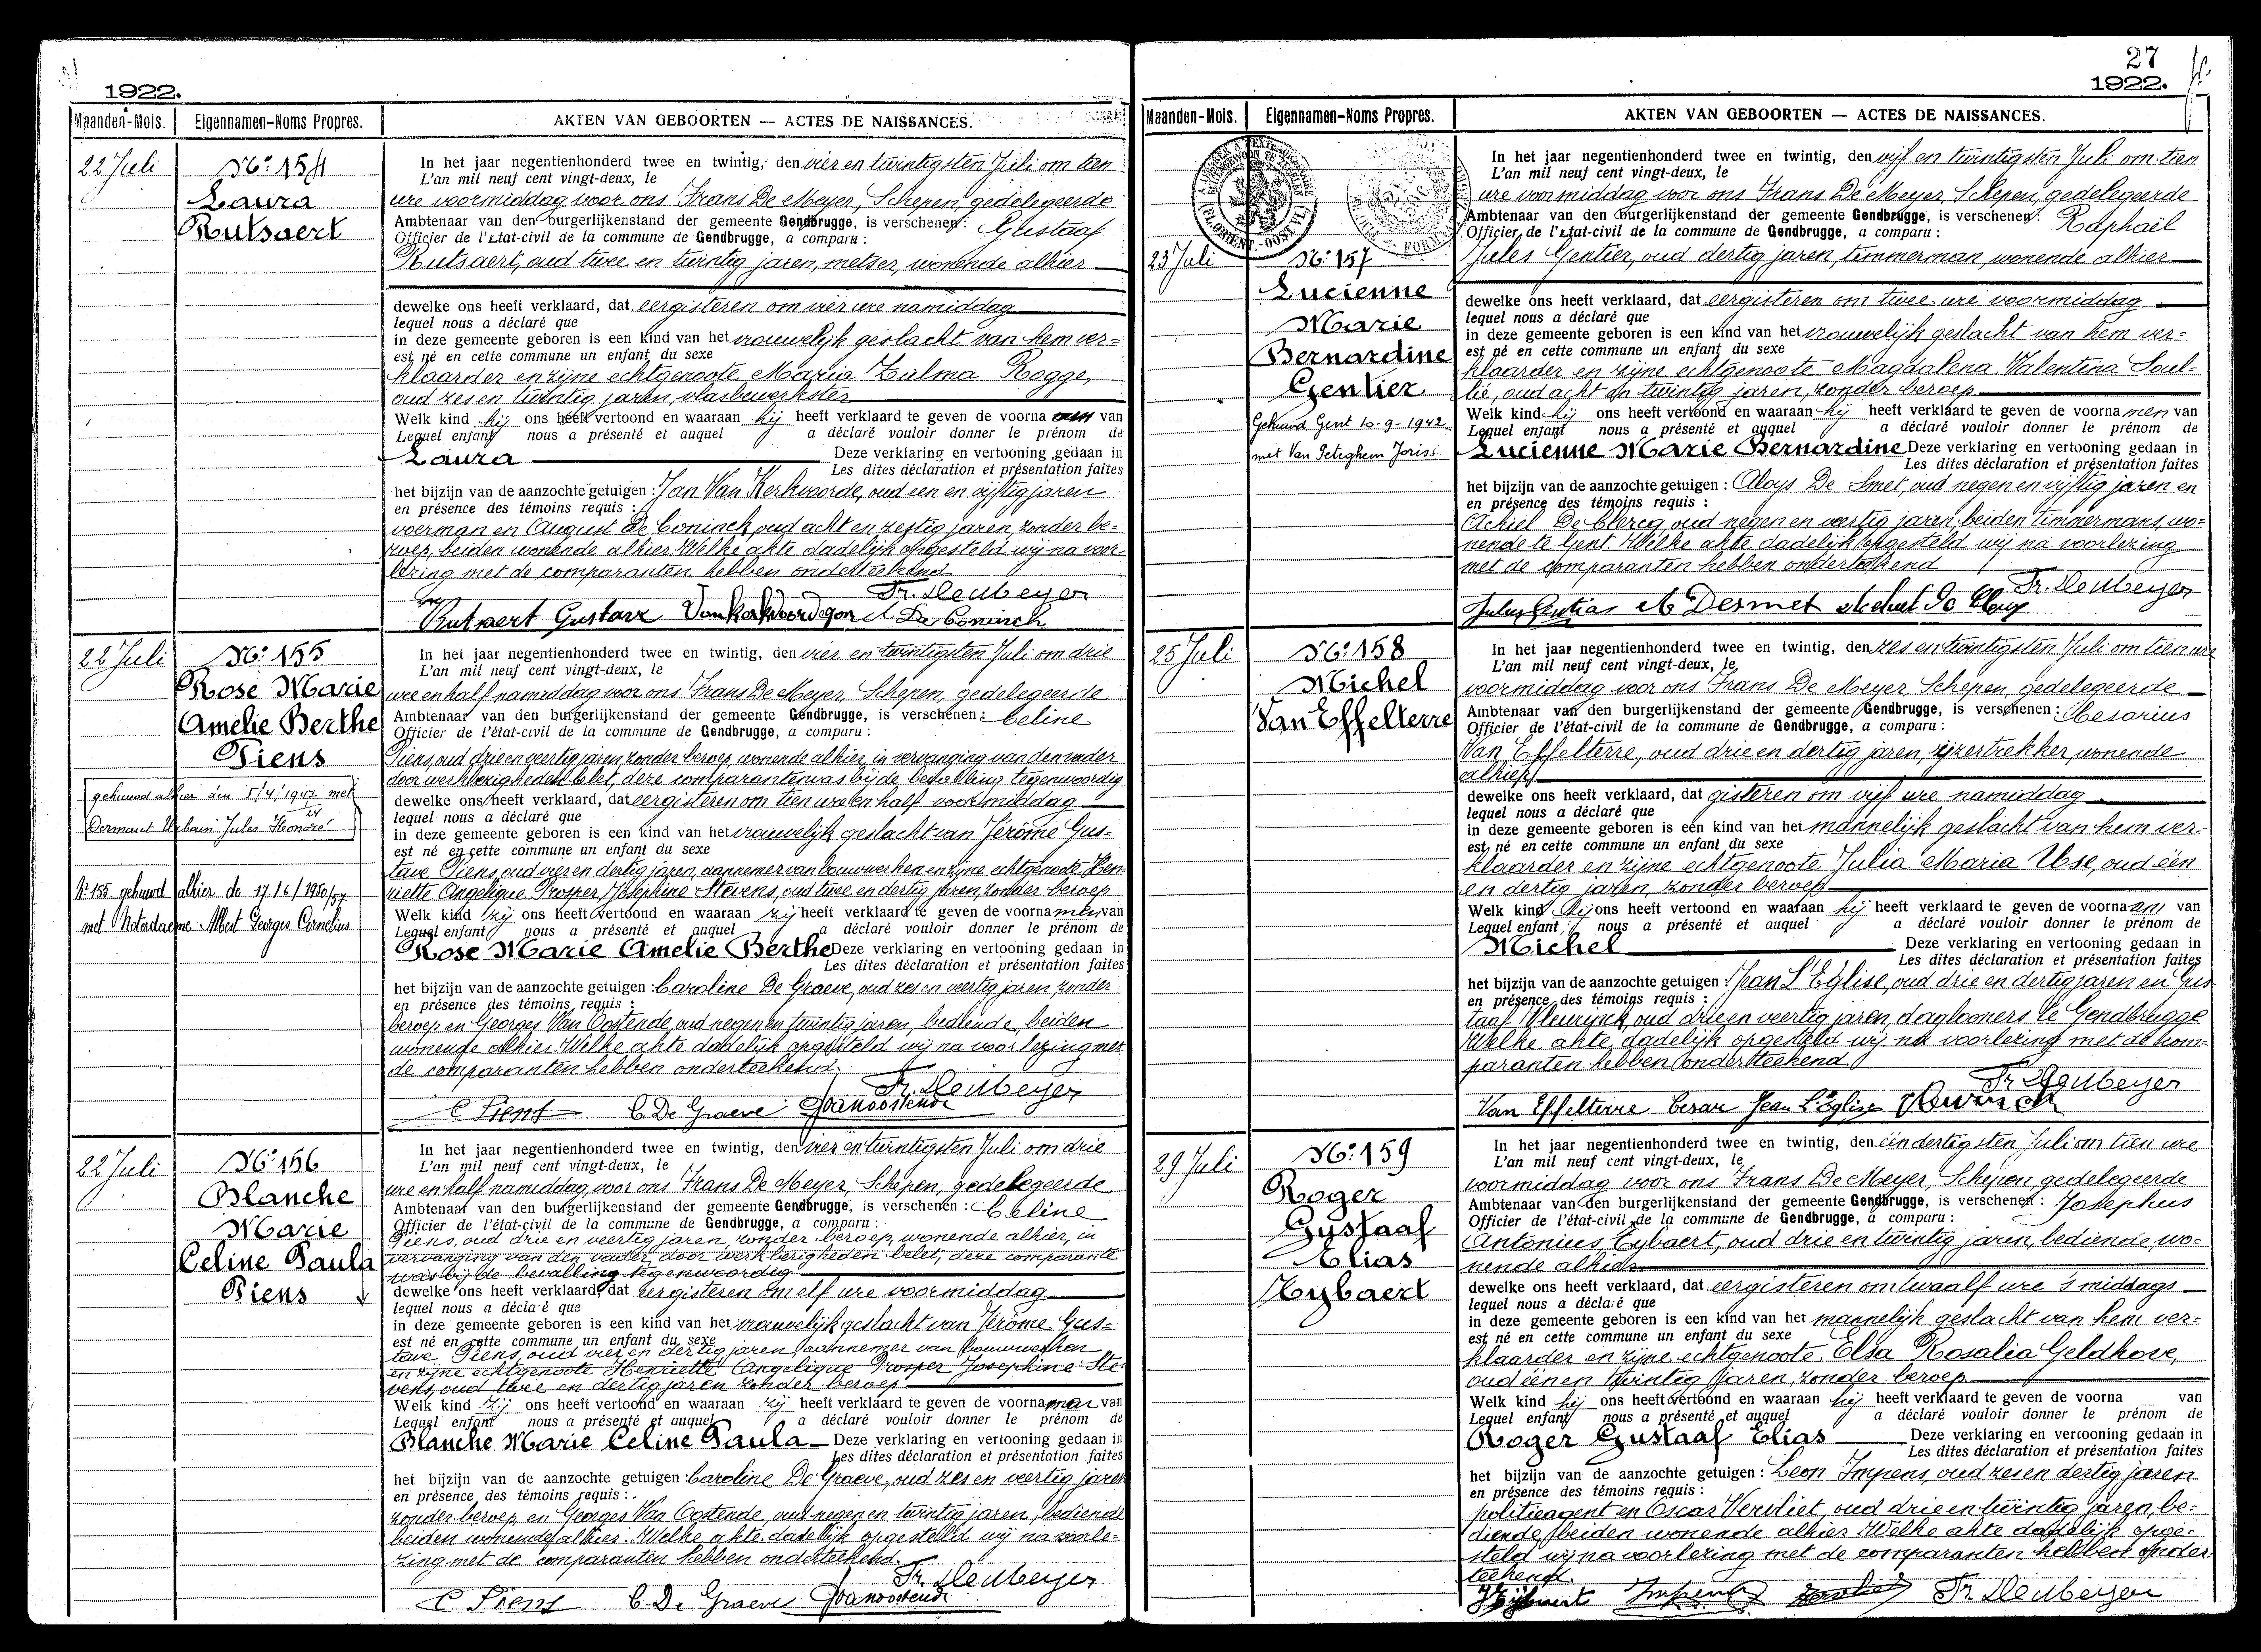 1922.
Maanden-Mois.
Eigennamen-Noms Propres.
AKTEN VAN GEBOORTEN — ACTES DE NAISSANCES.
22 Juli
No: 154
Laura
Rutsaert
In het jaar negentienhonderd twee en twintig, den vier en twintigsten Juli om tien
L'an mil neuf cent vingt-deux, le
ure voormiddag voor ons Frans De Meyer, Schepen, gedelegeerde
Ambtenaar van den burgerlijkenstand der gemeente Gendbrugge, is verschenen: Gustaaf
Officier de l'Etat-civil de la commune de Gendbrugge, a comparu:
Rutsaert, oud twee en twintig jaren, metser, wonende alhier
dewelke ons heeft verklaard, dat eergisteren om vier ure namiddag
lequel nous a déclaré que
in deze gemeente geboren is een kind van het vrouwelijk geslacht van hem ver=
est né en cette commune un enfant du sexe
klaarder en zijne echtgenoote Maria Zulma Rogge,
oud zes en twintig jaren, vlasbewerkster
Welk kind hij ons heeft vertoond en waaraan hij heeft verklaard te geven de voorna van
Lequel enfant nous a présenté et auquel a déclaré vouloir donner le prénom de
Laura Deze verklaring en vertooning gedaan in
Les dites déclaration et présentation faites
het bijzijn van de aanzochte getuigen: Jan Van Kerkvoorde, oud een en vijftig jaren
en présence des témoins requis:
voerman en August De Coninck, oud acht en zestig jaren, zonder be=
roep, beiden wonende alhier. Welke akte dadelijk opgesteld wij na voor-
lezing met de comparanten hebben onderteekend
Fr. De Meyer
Rutsaert Gustaaf Van Kerkvoorde Jan A De Coninck
22 Juli
No: 155
Rose Marie
Amelie Berthe
Piens
gehuwd alhier den 5/4/1947 met
Dermaut Urbain Jules Honoré
No 155 gehuwd alhier de 17/6/1950/57
met Noterdaeme Albert Georges Cornelius
In het jaar negentienhonderd twee en twintig, den vier en twintigsten Juli om drie
L'an mil neuf cent vingt-deux, le
ure en half namiddag voor ons Frans De Meyer, Schepen, gedelegeerde
Ambtenaar van den burgerlijkenstand der gemeente Gendbrugge, is verschenen: Celine
Officier de l'état-civil de la commune de Gendbrugge, a comparu:
Piens, oud drie en veertig jaren, zonder beroep, wonende alhier, in vervanging van den vader
door werkbezigheden belet, deze comparante was bij de bevalling tegenwoordig
dewelke ons heeft verklaard, dat eergisteren om tien ure en half voormiddag
lequel nous a déclaré que
in deze gemeente geboren is een kind van het vrouwelijk geslacht van Jérôme Gus=
est né en cette commune un enfant du sexe
tave Piens, oud vier en dertig jaren, aannemer van bouwwerken en zijne echtgenoote Hen-
riette Angelique Prosper Josephine Stevens, oud twee en dertig jaren, zonder beroep
Welk kind zij ons heeft vertoond en waaraan zij heeft verklaard te geven de voornamen van
Lequel enfant nous a présenté et auquel a déclaré vouloir donner le prénom de
Rose Marie Amelie Berthe Deze verklaring en vertooning gedaan in
Les dites déclaration et présentation faites
het bijzijn van de aanzochte getuigen: Caroline De Graeve, oud zes en veertig jaren, zonder
en présence des témoins requis:
beroep en Georges Van Oostende, oud negen en twintig jaren, bediende, beiden
wonende alhier. Welke akte dadelijk opgesteld wij na voorlezing met
de comparanten hebben onderteekend.
Fr. De Meyer
C Piens C. De Graeve G Vanoostende
22 Juli
No: 156
Blanche
Marie
Celine Paula
Piens
In het jaar negentienhonderd twee en twintig, den vier en twintigsten Juli om drie
L'an mil neuf cent vingt-deux, le
ure en half namiddag, voor ons Frans De Meyer, Schepen, gedelegeerde
Ambtenaar van den burgerlijkenstand der gemeente Gendbrugge, is verschenen: Celine
Officier de l'état-civil de la commune de Gendbrugge, a comparu:
Piens, oud drie en veertig jaren, zonder beroep, wonende alhier, in
vervanging van den vader, door werkbezigheden belet, deze comparante
was bij de bevalling tegenwoordig
dewelke ons heeft verklaard, dat eergisteren om elf ure voormiddag
lequel nous a déclaré que
in deze gemeente geboren is een kind van het vrouwelijk geslacht van Jérôme Gus=
est né en cette commune un enfant du sexe
tave Piens, oud vier en dertig jaren, aannemer van bouwwerken
en zijne echtgenoote Henriette Angelique Prosper Josephine Ste=
vens, oud twee en dertig jaren zonder beroep
Welk kind zij ons heeft vertoond en waaraan zij heeft verklaard te geven de voornamen van
Lequel enfant nous a présenté et auquel a déclaré vouloir donner le prénom de
Blanche Marie Celine Paula Deze verklaring en vertooning gedaan in
Les dites déclaration et présentation faites
het bijzijn van de aanzochte getuigen: Caroline De Graeve, oud zes en veertig jaren
en présence des témoins requis:
zonder beroep, en Georges Van Oostende, oud negen en twintig jaren, bediende
beiden wonende alhier. Welke akte dadelijk opgesteld wij na voorle=
zing met de comparanten hebben onderteekend.
Fr. De Meyer
C Piens C. De Graeve G Vanoostende
27
1922.
Maanden-Mois.
Eigennamen-Noms Propres.
AKTEN VAN GEBOORTEN — ACTES DE NAISSANCES.
23 Juli
No: 157
Lucienne
Marie
Bernardine
Gentier
Gehuwd Gent 10-9-1942
met Van Peteghem Joris
In het jaar negentienhonderd twee en twintig, den vijf en twintigsten Juli om tien
L'an mil neuf cent vingt-deux, le
ure voormiddag voor ons Frans De Meyer, Schepen, gedelegeerde
Ambtenaar van den burgerlijkenstand der gemeente Gendbrugge, is verschenen: Raphaël
Officier de l'état-civil de la commune de Gendbrugge, a comparu:
Jules Gentier, oud dertig jaren, timmerman, wonende alhier
dewelke ons heeft verklaard, dat eergisteren om twee ure voormiddag
lequel nous a déclaré que
in deze gemeente geboren is een kind van het vrouwelijk geslacht van hem ver=
est né en cette commune un enfant du sexe
klaarder en zijne echtgenoote Magdalena Valentina Soul-
lié, oud acht en twintig jaren, zonder beroep
Welk kind hij ons heeft vertoond en waaraan hij heeft verklaard te geven de voornamen van
Lequel enfant nous a présenté et auquel a déclaré vouloir donner le prénom de
Lucienne Marie Bernardine Deze verklaring en vertooning gedaan in
Les dites déclaration et présentation faites
het bijzijn van de aanzochte getuigen: Aloys De Smet, oud negen en vijftig jaren en
en présence des témoins requis:
Achiel De Clercq, oud negen en veertig jaren, beiden timmermans, wo=
nende te Gent. Welke akte dadelijk opgesteld wij na voorlezing
met de comparanten hebben onderteekend
Fr. De Meyer
A Desmet
25 Juli
No: 158
Michel
Van Effelterre
In het jaar negentienhonderd twee en twintig, den zes en twintigsten Juli om tien ure
L'an mil neuf cent vingt-deux, le
voormiddag voor ons Frans De Meyer Schepen, gedelegeerde
Ambtenaar van den burgerlijkenstand der gemeente Gendbrugge, is verschenen: Cesarius
Officier de l'état-civil de la commune de Gendbrugge, a comparu:
Van Effelterre, oud drie en dertig jaren, ijzertrekker, wonende
alhier
dewelke ons heeft verklaard, dat gisteren om vijf ure namiddag
lequel nous a déclaré que
in deze gemeente geboren is een kind van het mannelijk geslacht van hem ver-
est né en cette commune un enfant du sexe
klaarder en zijne echtgenoote Julia Maria Use, oud één
en dertig jaren, zonder beroep
Welk kind hij ons heeft vertoond en waaraan hij heeft verklaard te geven de voornaam van
Lequel enfant nous a présenté et auquel a déclaré vouloir donner le prénom de
Michel Deze verklaring en vertooning gedaan in
Les dites déclaration et présentation faites
het bijzijn van de aanzochte getuigen: Jean L'Eglise, oud drie en dertig jaren en Gus
en présence des témoins requis:
taaf Vleurinck, oud drie en veertig jaren, dagloners te Gendbrugge
Welke akte dadelijk opgesteld wij na voorlezing met de kom=
paranten hebben onderteekend
Fr De Meyer
Van Effelterre Cesar Jean L'Eglise
29 Juli
No: 159
Roger
Gustaaf
Elias
Zybaert
In het jaar negentienhonderd twee en twintig, den één dertigsten Juli om tien ure
L'an mil neuf cent vingt-deux, le
voormiddag voor ons Frans De Meyer, Schepen, gedelegeerde
Ambtenaar van den burgerlijkenstand der gemeente Gendbrugge, is verschenen: Josephus
Officier de l'état-civil de la commune de Gendbrugge, a comparu:
Antonius Zybaert, oud drie en twintig jaren, bediende, wo=
nende alhier
dewelke ons heeft verklaard, dat eergisteren om twaalf ure 's middags
lequel nous a déclaré que
in deze gemeente geboren is een kind van het mannelijk geslacht van hem ver=
est né en cette commune un enfant du sexe
klaarder en zijne echtgenoote Elsa Rosalia Geldhove,
oud één en twintig jaren, zonder beroep
Welk kind hij ons heeft vertoond en waaraan hij heeft verklaard te geven de voorna van
Lequel enfant nous a présenté et auquel a déclaré vouloir donner le prénom de
Roger Gustaaf Elias Deze verklaring en vertooning gedaan in
Les dites déclaration et présentation faites
het bijzijn van de aanzochte getuigen: Leon Impens, oud zes en dertig jaren
en présence des témoins requis:
politieagent en Oscar Versliet, oud drie en twintig jaren, be=
diende, beiden wonende alhier Welke akte dadelijk opge=
steld wij na voorlezing met de comparanten hebben onder-
teekend.
Fr. De Meyer